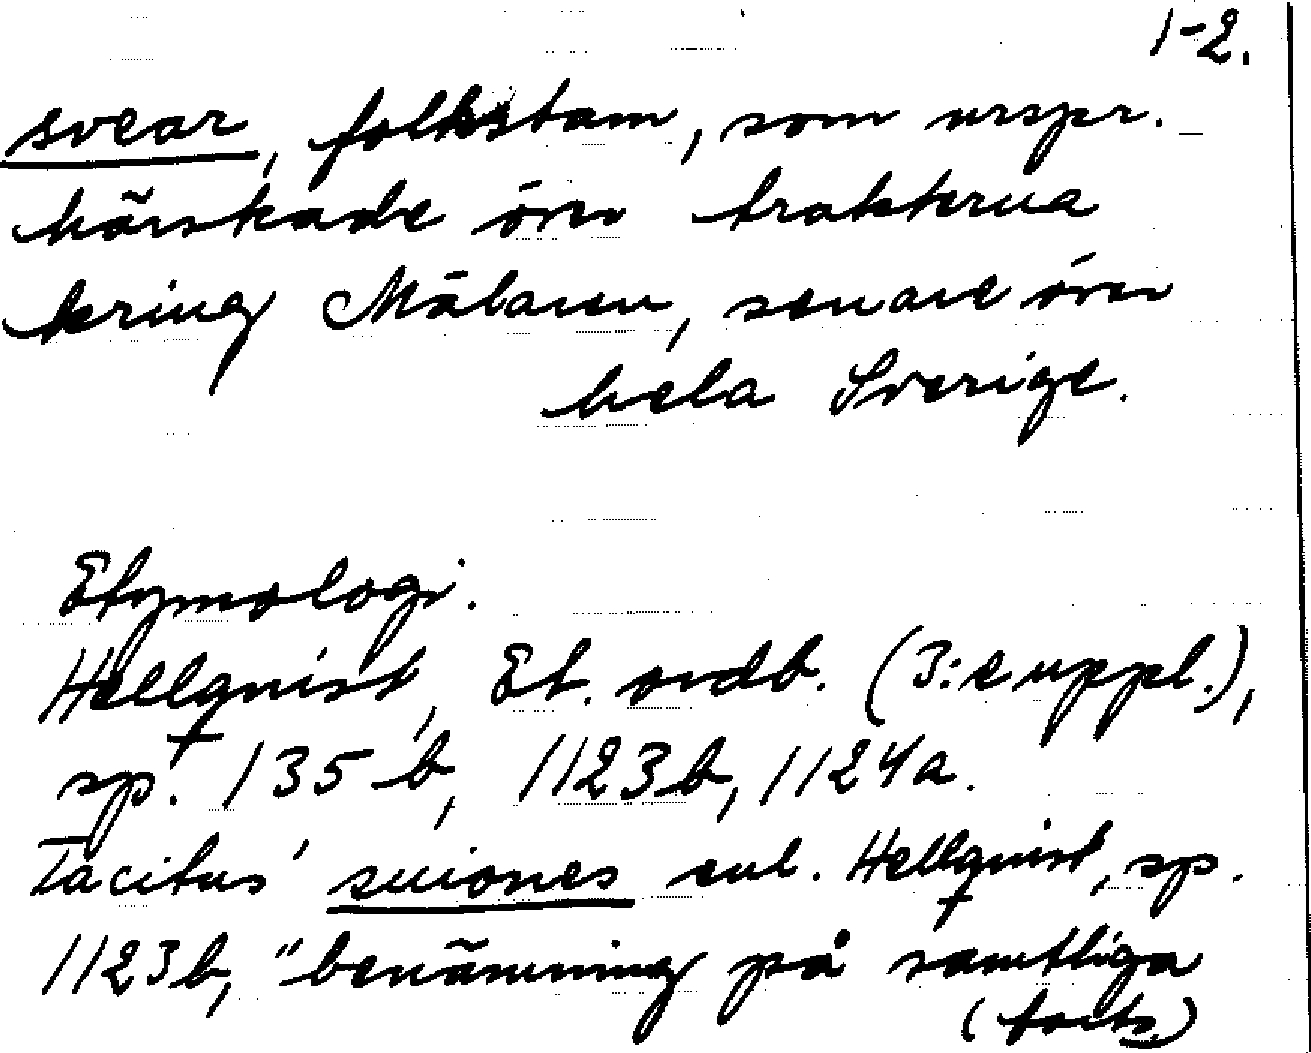 1-2.
svear, folkstam, som urspr.
härskade över trakterna
kring Mälaren, senare över
hela Sverige.
Etymologi.
Hellquist, Et. ordb. (3:e uppl.),
sp. 1135 b, 1123b, 1124a.
Tacitus' suiones enl. Hellquist, sp.
1123b, "benämning på samtliga
(forts.)